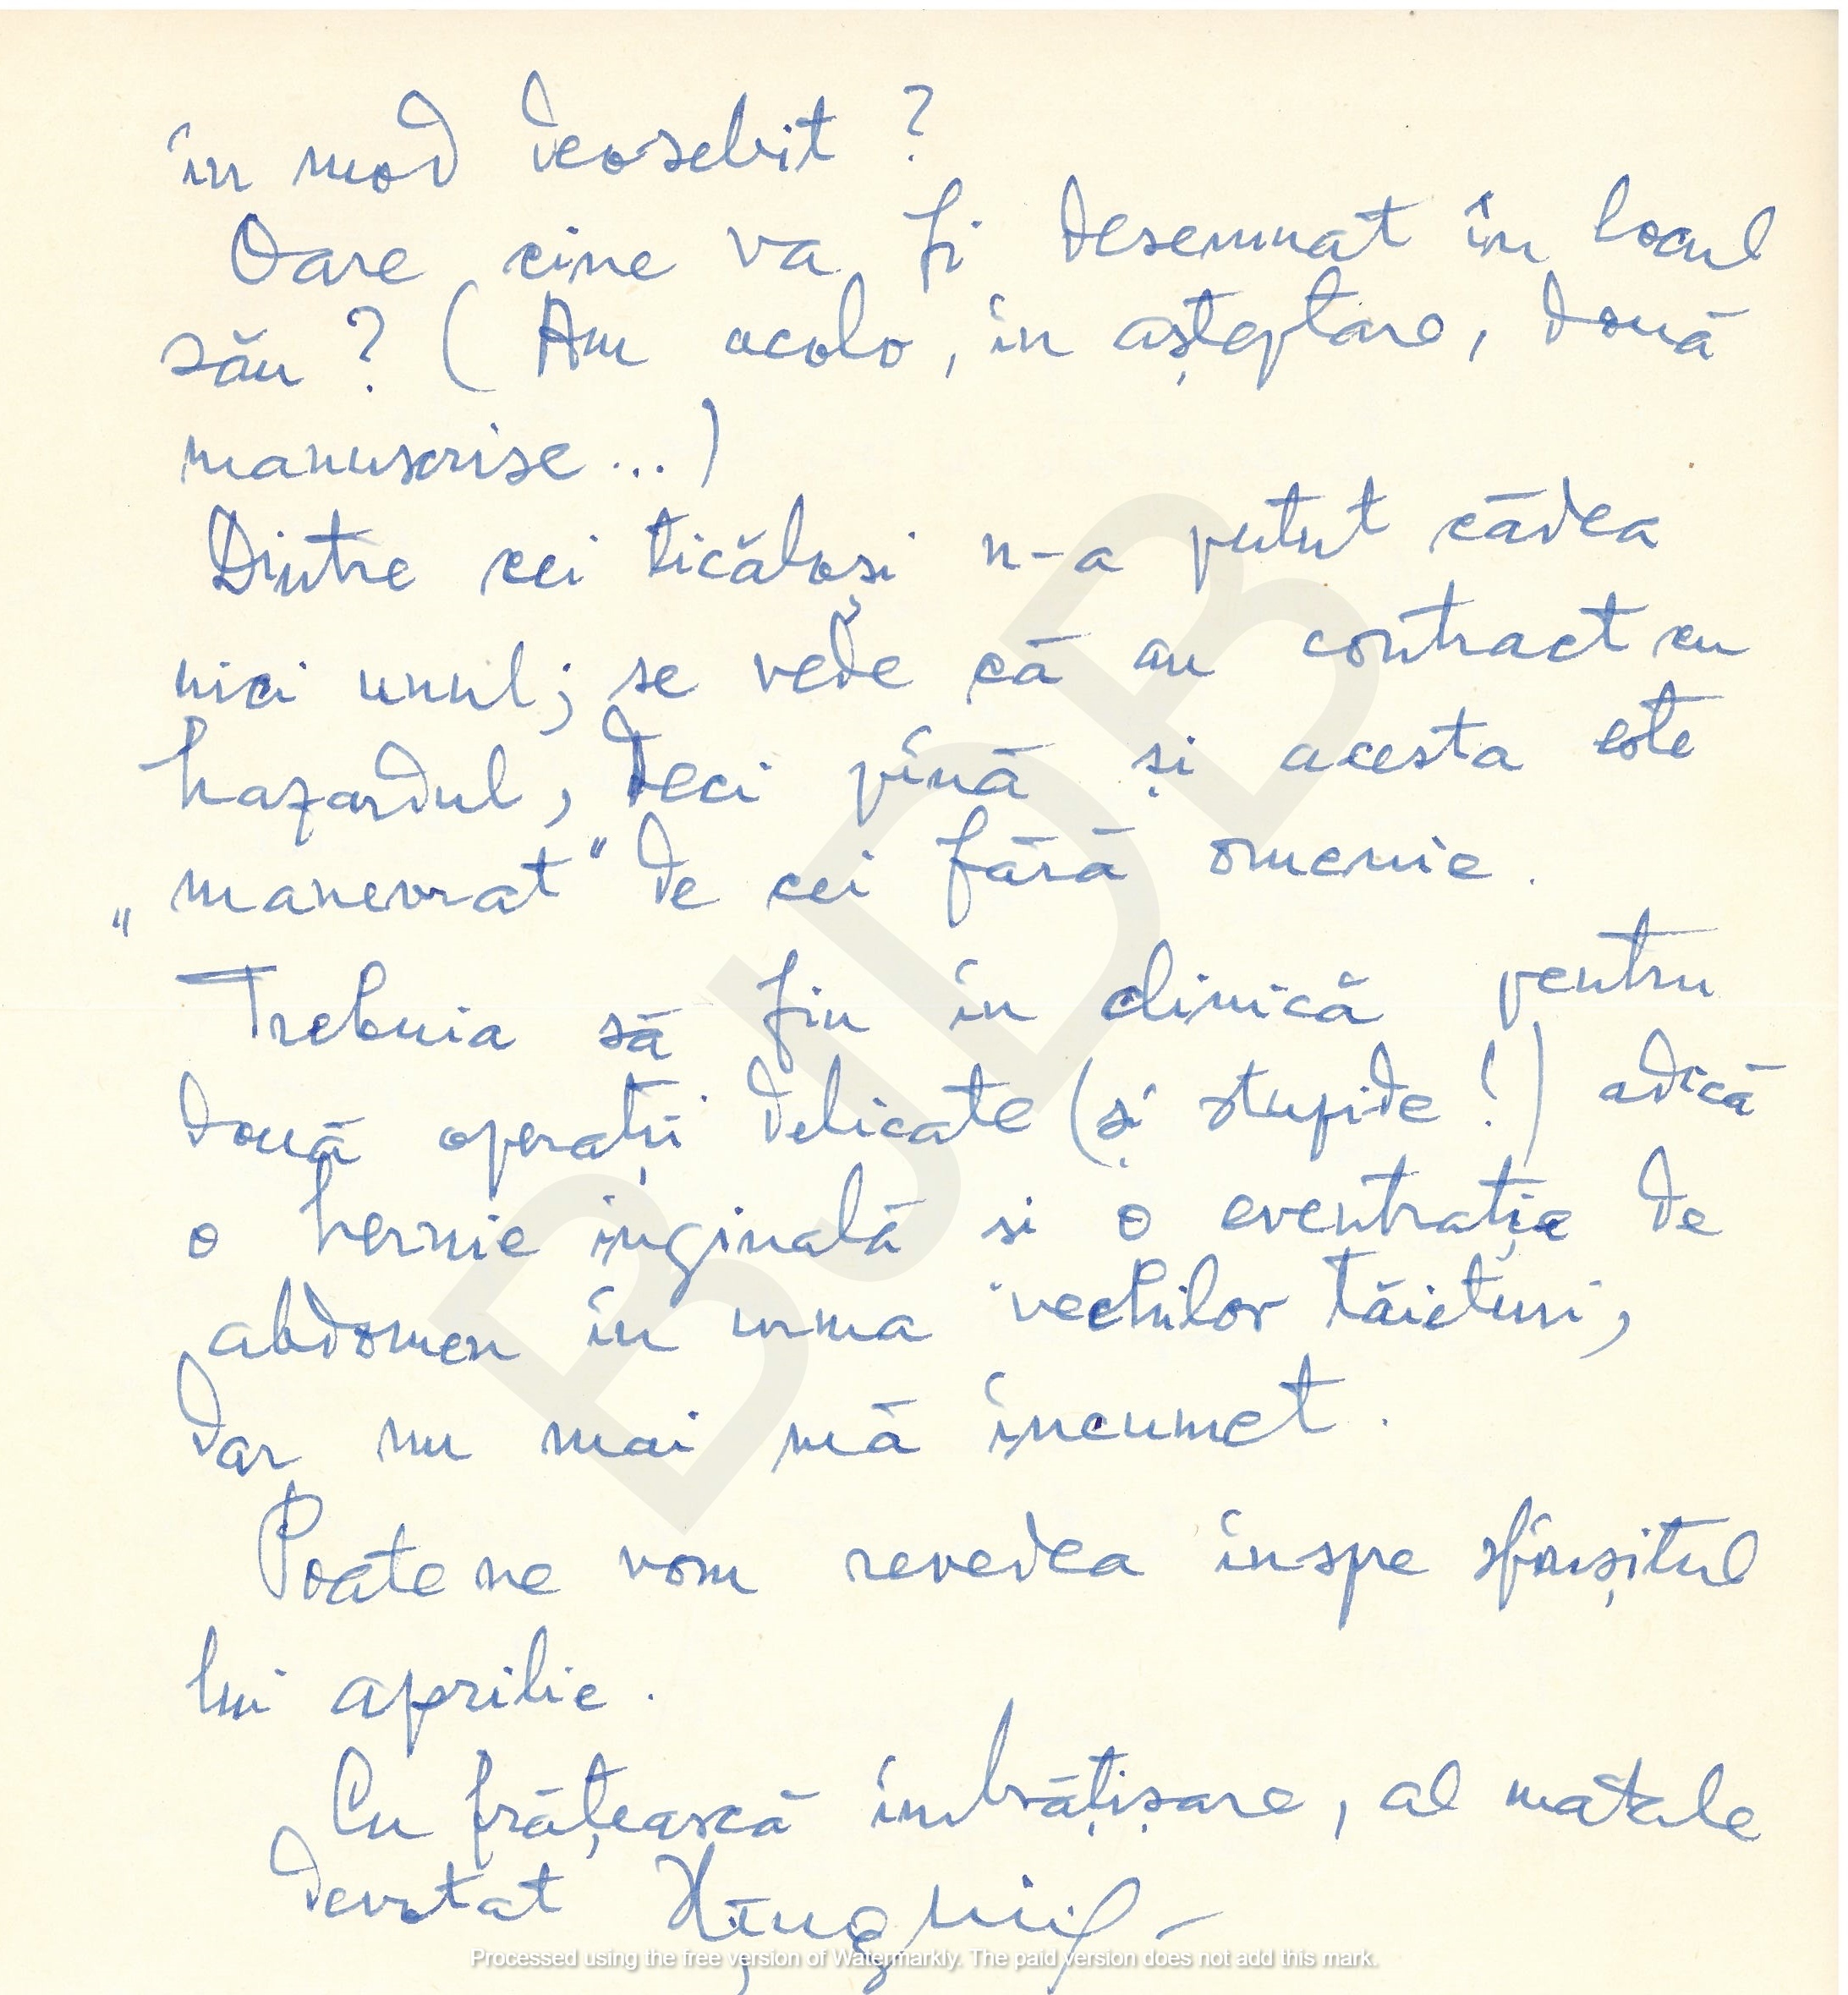 în mod deosebit ?
Oare cine va fi desemnat în locul
său ? (Am acolo, în așteptare, două
manuscrise...)
Dintre cei ticăloși n-a putut cădea
nici unul; se vede că au contract cu
hazardul, deci pînă și acesta este
„manevrat" de cei fără omenie.
Trebuia să fiu în clinică pentru
două operații delicate (și stupide!) adică
o hernie inginală si o eventrație de
abdomen în urma vechilor tăieturi,
dar nu mai mă încumet.
Poate ne vom revedea înspre sfîrșitul
lui aprilie.
Cu frățească îmbrățișare, al matale
devotat
BJDB
Processed using the free version of Watermarkly. The paid version does not add this mark.